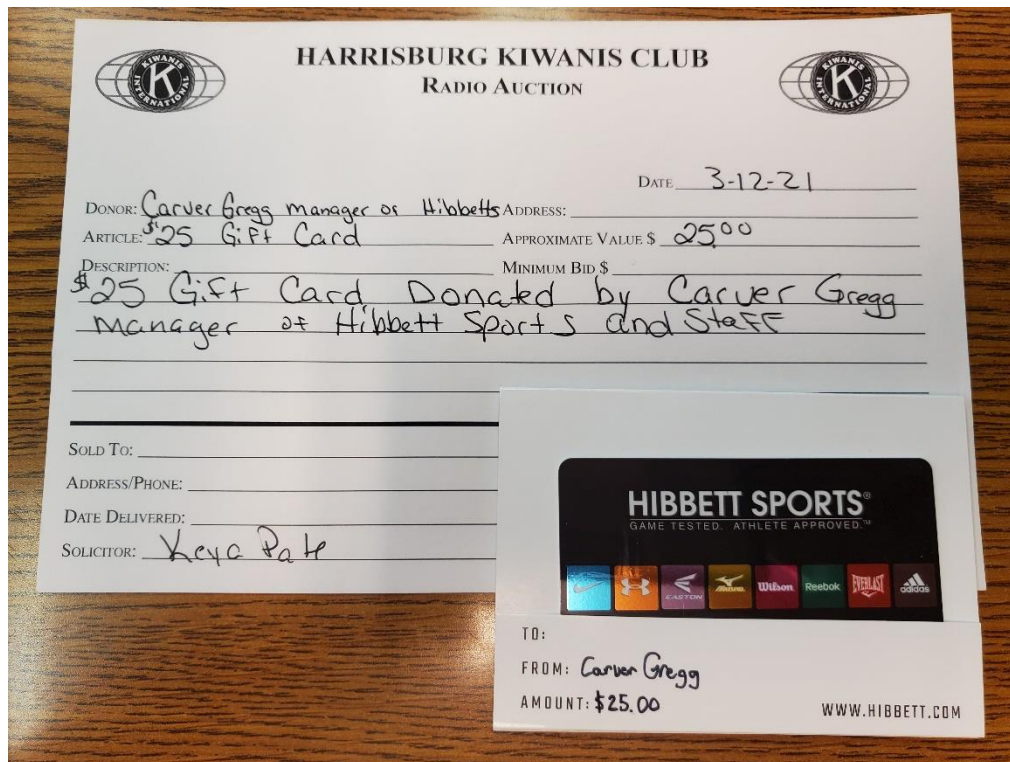 HARRISBURG KIWANIS CLUB
RADIO AUCTION
KIWANIS K INTERNATIONAL
KIWANIS K INTERNATIONAL
DATE 3-12-21
DONOR: Carver Gregg manager of Hibbetts ADDRESS:
ARTICLE: $25 Gift Card APPROXIMATE VALUE $ 25.00
DESCRIPTION: MINIMUM BID $
$25 Gift Card Donated by Carver Gregg
Manager of Hibbett Sports and Staff
SOLD TO:
ADDRESS/PHONE:
DATE DELIVERED:
SOLICITOR: Keya Pate
HIBBETT SPORTS®
GAME TESTED. ATHLETE APPROVED.™
EASTON MIZUNO Wilson Reebok EVERLAST adidas
TO:
FROM: Carver Gregg
AMOUNT: $25.00
WWW.HIBBETT.COM